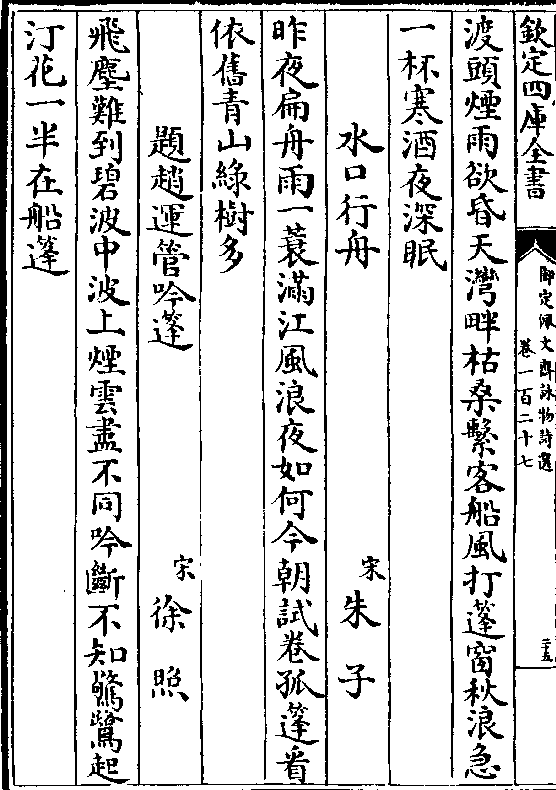 欽定四庫全書
御定佩文齋詠物詩選
卷一百二十七
二五
渡頭煙雨欲昏天灣畔枯桑繫客船風打蓬窗秋浪急
一杯寒酒夜深眠
水口行舟
宋朱子
昨夜扁舟雨一蓑滿江風浪夜如何今朝試卷孤篷看
依舊青山綠樹多
題趙運管吟篷
宋徐照
飛塵難到碧波中波上煙雲盡不同吟斷不知驚鷺起
汀花一半在船篷